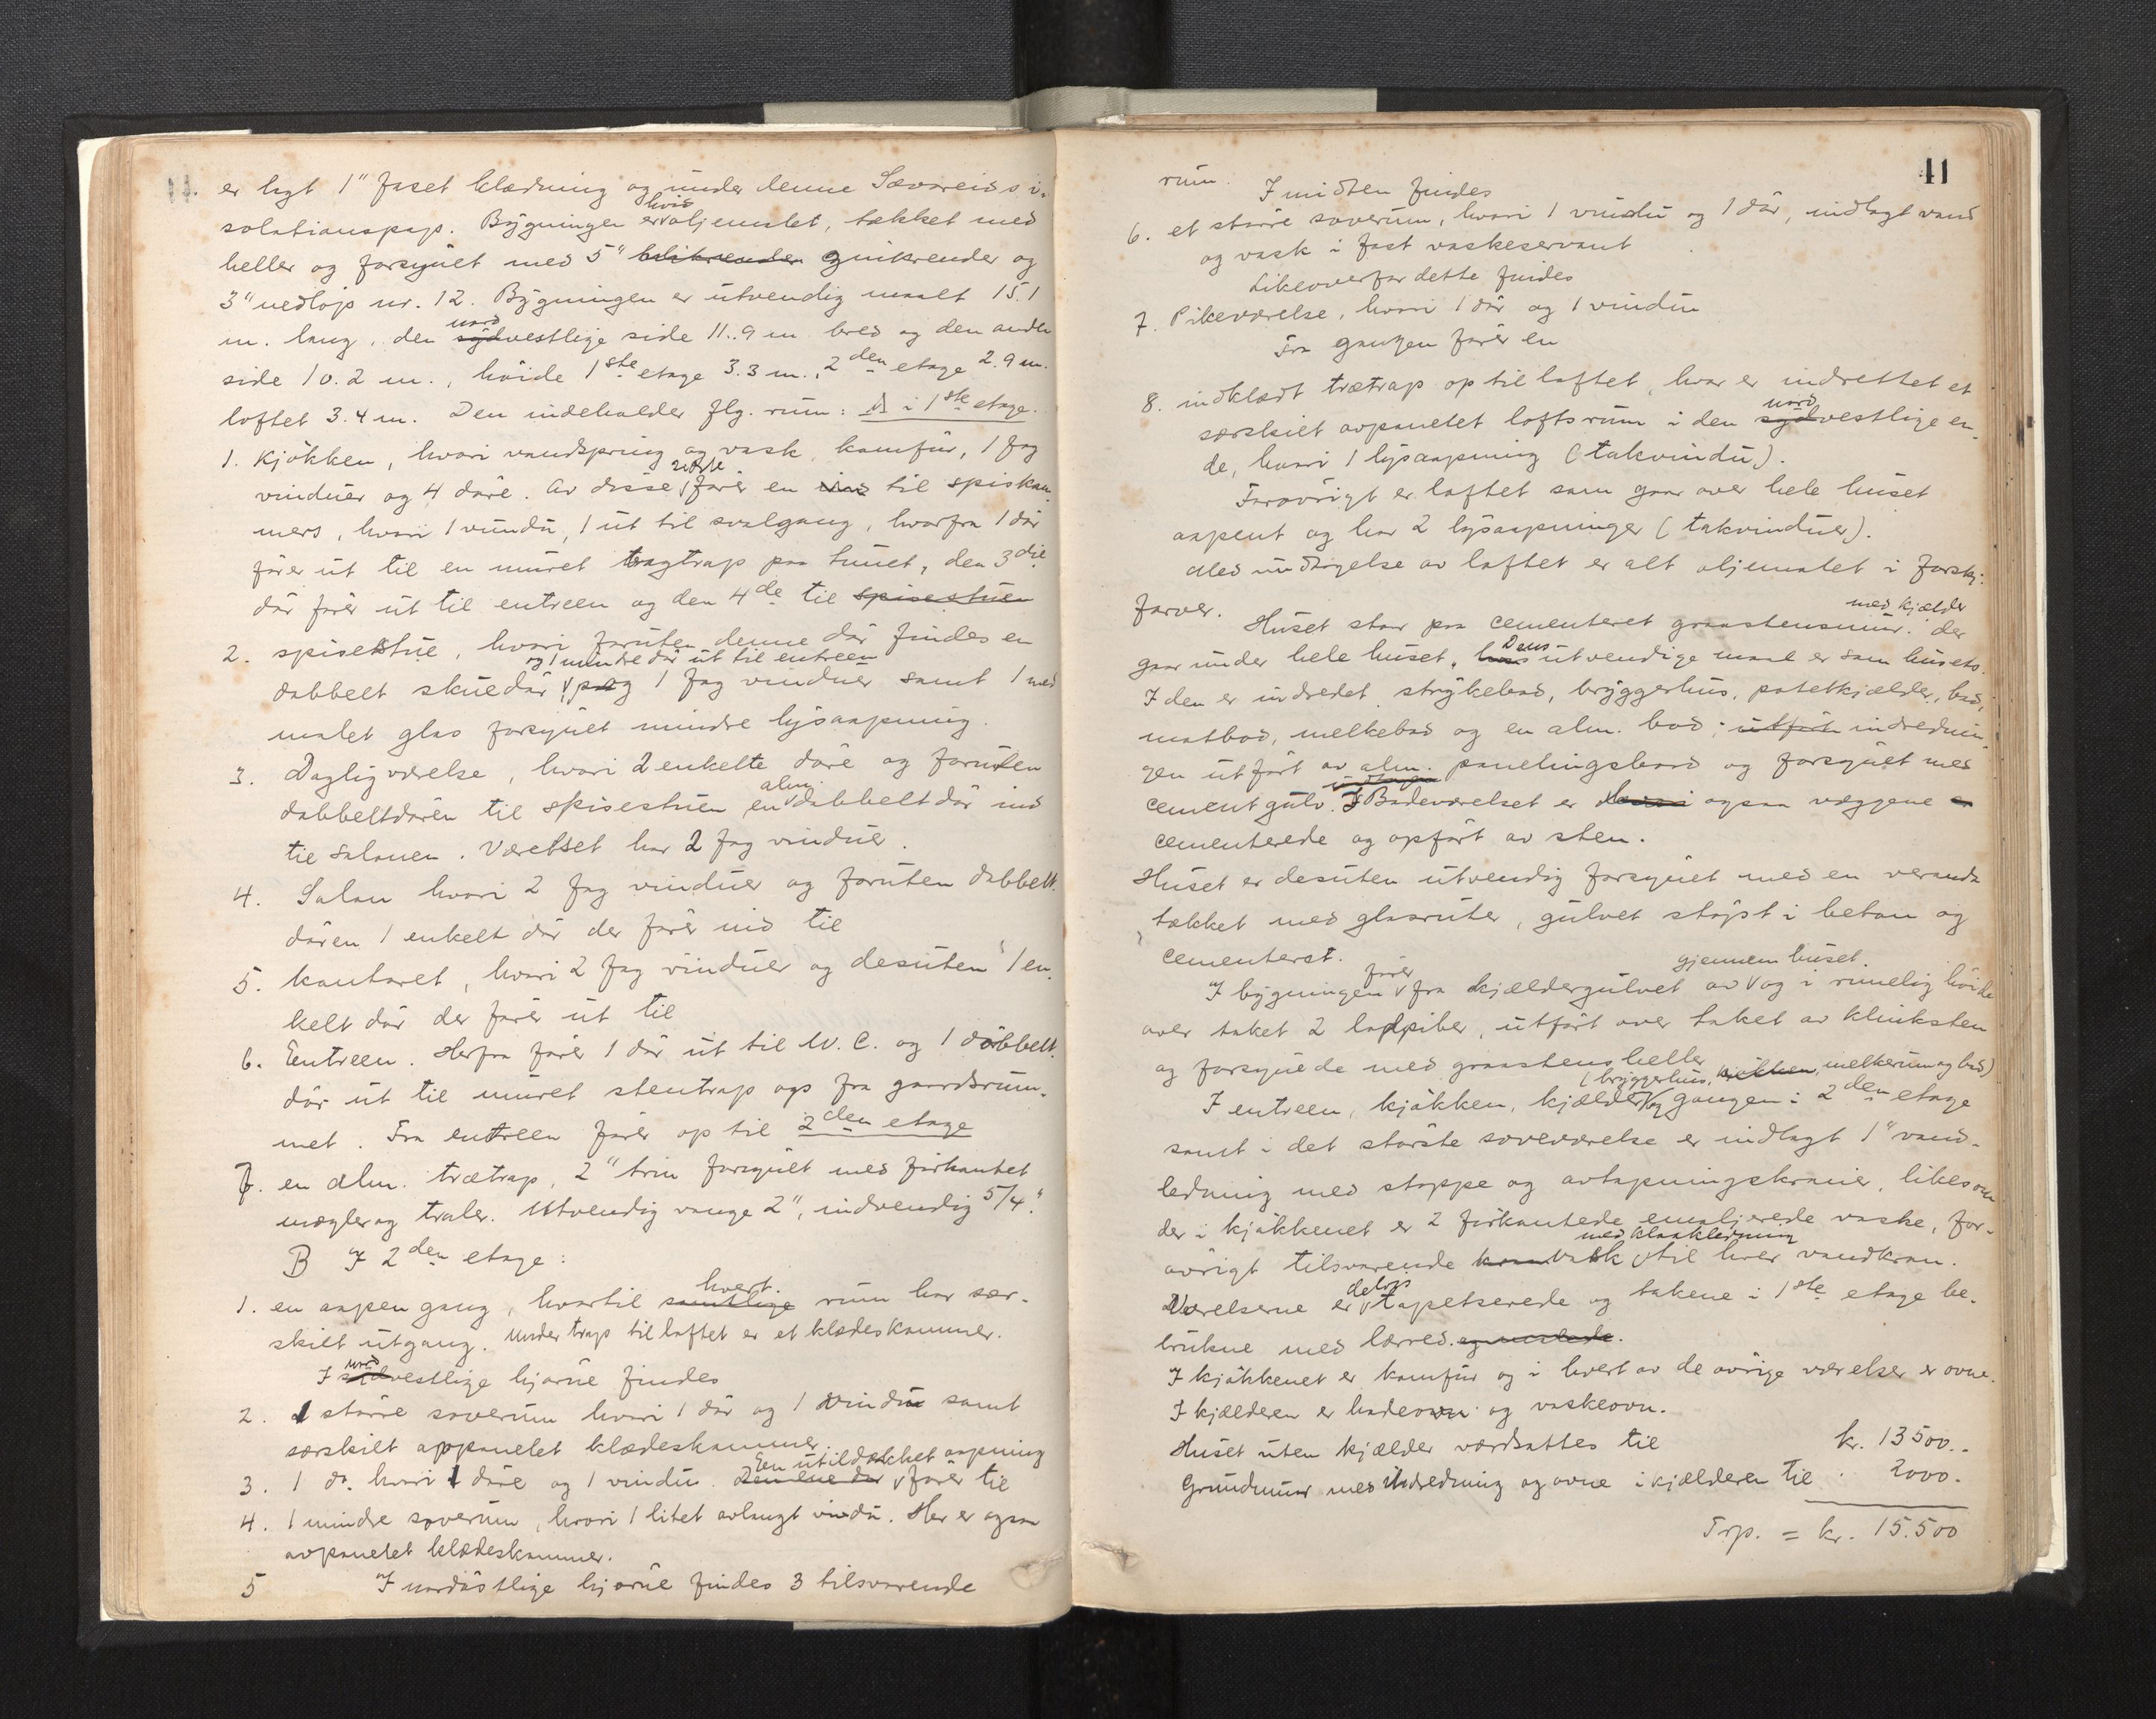 er lagt 1" faset klædning og under denne Sævareids i-
solationspap. Bygningen er hvit oljemalet, tækket med
heller og forsynet med 5" blikrender zinkrender og
3" nedløp nr. 12. Bygningen er utvendig maalt 15.1
m. lang, den syd nordvestlige side 11.9 m bred og den anden
side 10.2 m., høide 1ste etage 3.3 m., 2den etage 2.9 m.
loftet 3.4 m. Den indeholder flg. rum: A i 1ste etage.
1. Kjøkken, hvori vandspring og vask, komfur, 1 fag
vinduer og 4 døre. Av disse fører en ind til spiskam-
mers, hvori 1 vindu, 1 ut til svalgang, hvorfra 1 dør
fører ut til en muret trap paa tunet, den 3die
dør fører ut til entreen og den 4de til spisestuen
2. spisestue, hvori foruten denne dør findes en
og 1 mindre dør ut til entreen
dobbelt skuedør og 1 fag vinduer samt 1 med
malet glas forsynet mindre lysaapning.
3. Dagligværelse, hvori 2 enkelte døre og foruten
dobbeltdøren til spisestuen en alm. dobbeltdør ind
til salonen. Værelset har 2 fag vinduer.
4. Salon hvori 2 fag vinduer og foruten dobbelt-
døren 1 enkelt dør der fører ind til
5. kontoret, hvori 2 fag vinduer og desuten 1 en-
kelt dør der fører ut til
6. Entreen. Herfra fører 1 dør ut til W.C. og 1 dobbelt-
dør ut til muret stentrap op fra gaardsrum-
met. Fra entreen fører op til 2den etage
7. en alm. trætrap, 2" trin forsynet med firkantet
mægler og traler. Utvendig vange 2", indvendig 5/4".
B I 2den etage:
1. en aapen gang, hvortil samtlige hvert rum har sær-
skilt utgang. Under trap til loftet er et klædeskammer.
I syd nordvestlige hjørne findes
2. 1 større soverum hvori 1 dør og 1 vindu samt
særskilt avpanelet klædeskammer
3. 1 do. hvori 1 døre og 1 vindu. Den ene dør En utildækket aapning fører til
4. 1 mindre soverum, hvori 1 litet avlangt vindu. Her er ogsaa
avpanelet klædeskammer.
5 I nordøstlige hjørne findes 3 tilsvarende
41
rum. I midten findes
6. et større soverum, hvori 1 vindu og 1 dør, indlagt vand
og vask i fast vaskeservant
Likeoverfor dette findes
7. Pikeværelse, hvori 1 dør og 1 vindu
Fra gangen fører en
8. indklædt trætrap op til loftet, hvor er indrettet et
særskilt avpanelet loftsrum i den syd nordvestlige en-
de, hvori 1 lysaapning (takvindu).
Forøvrigt er loftet som gaar over hele huset
aapent og har 2 lysaapninger (takvinduer).
Med undtagelse av loftet er alt oljemalet i forskj.
farver.
Huset staar paa cementeret graastensmur. med kjælder der
gaar under hele huset. Dens utvendige maal er som husets.
I den er indredet strykebod, bryggerhus, potetkjælder, bad,
matbod, melkebod og en alm. bod; utført indrednin-
gen utført av alm. panelingsbord og forsynet med
cementgulv. I Badeværelset er ogsaa væggene er
cementerede og opført av sten.
Huset er desuten utvendig forsynet med en veranda
tækket med glasruter, gulvet støpt i beton og
cementeret.
I bygningen fører fra kjældergulvet av gjennem huset. og i rimelig høide
over taket 2 løppiber, utført over taket av klinksten
og forsynede med graastensheller
I entreen, kjøkken, kjælder (bryggerhus, kjøkken, melkerum og bad) og gangen i 2den etage
samt i det største soveværelse er indlagt 1" vand-
ledning med stoppe og avtapningskraner, likesom
der i kjøkkenet er 2 firkantede emaljerede vaske, for-
øvrigt tilsvarende vask med kloakledning til hver vandkran.
Værelserne er delvis tapetserede og takene i 1ste etage be-
trukne med lærred. og malede.
I kjøkkenet er komfur og i hvert av de øvrige værelser er ovne.
I kjælderen er badeovn og vaskeovn.
Huset uten kjælder værdsattes til kr. 13500.-
Grundmur med indredning og ovne i kjælderen til " 2000.-
Trp. = kr. 15.500